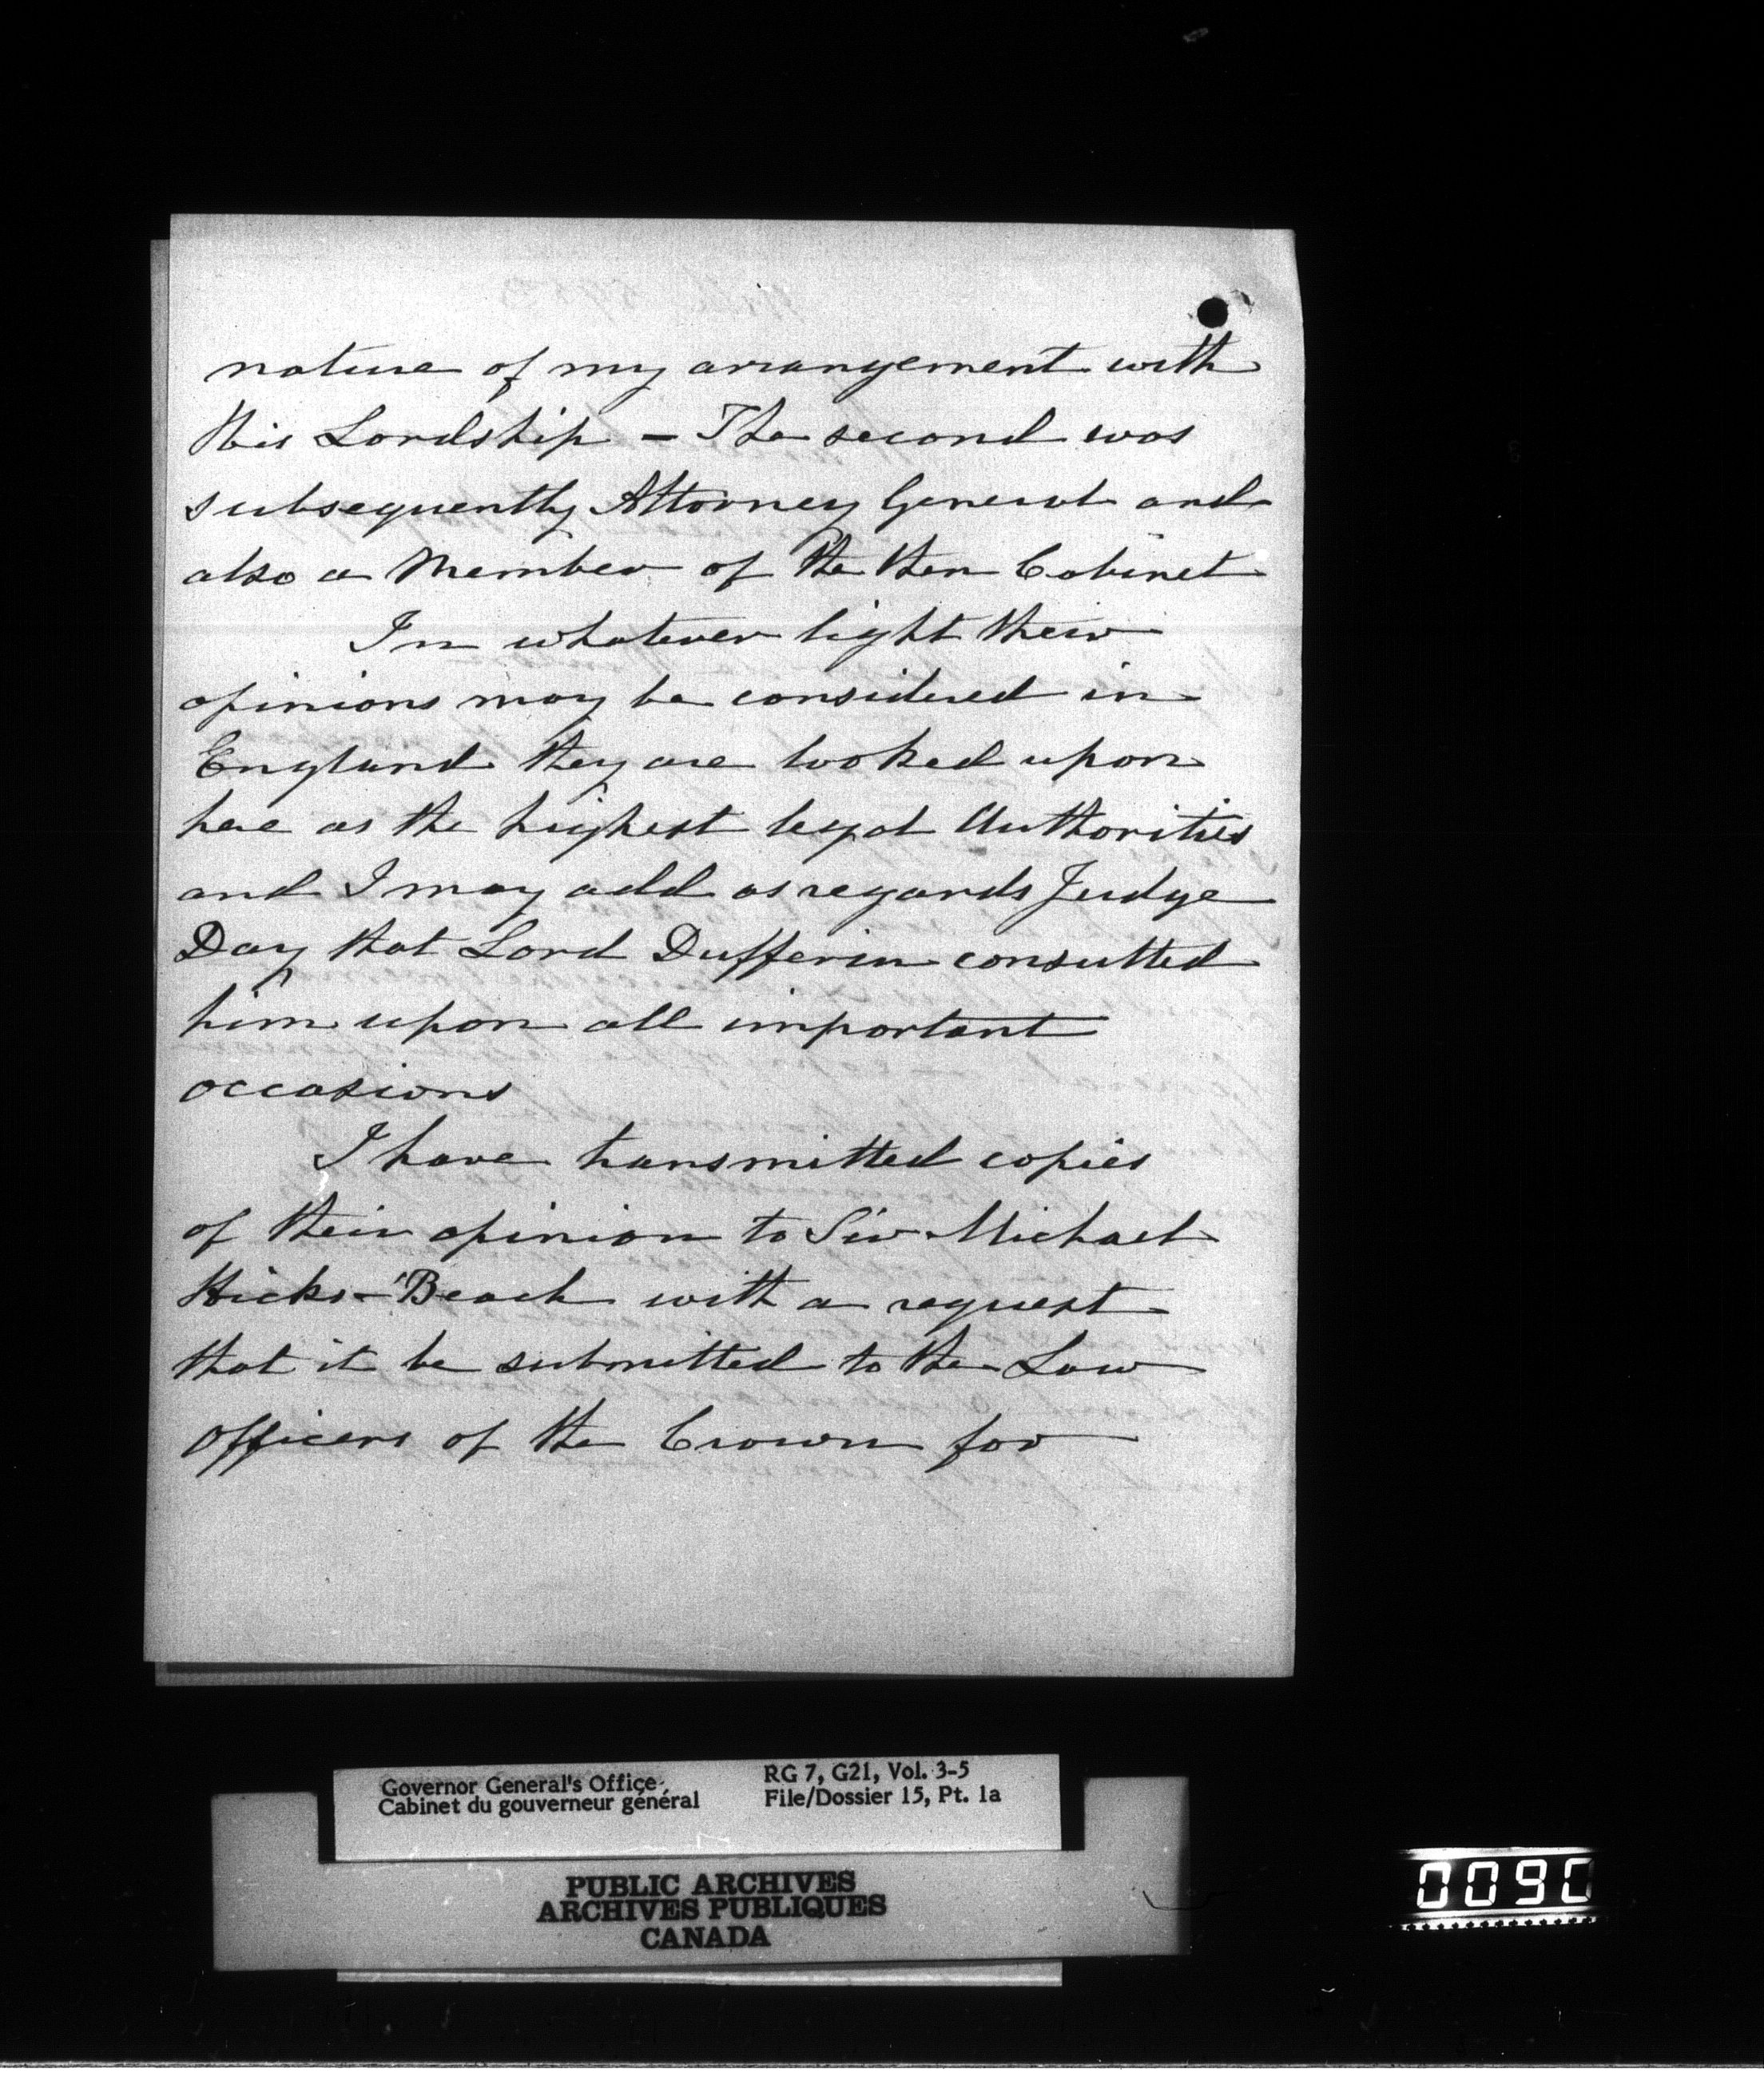 nature of my arrangement with
His Lordship – The second was
subsequently Attorney General and
also a Member of the then Cabinet
In whatever light their
opinions may be considered in
England they are looked upon
here as the highest legal Authorities
and I may add as regards Judge
Day that Lord Dufferin consulted
him upon all important
occasions
I have transmitted copies
of their opinion to Sir Michael
Hicks-Beach with a request
that it be submitted to the Law
Officers of the Crown for
Governor General's Office
Cabinet du gouverneur général
RG 7, G21, Vol. 3-5
File/Dossier 15, Pt. 1a
PUBLIC ARCHIVES
ARCHIVES PUBLIQUES
CANADA
0090